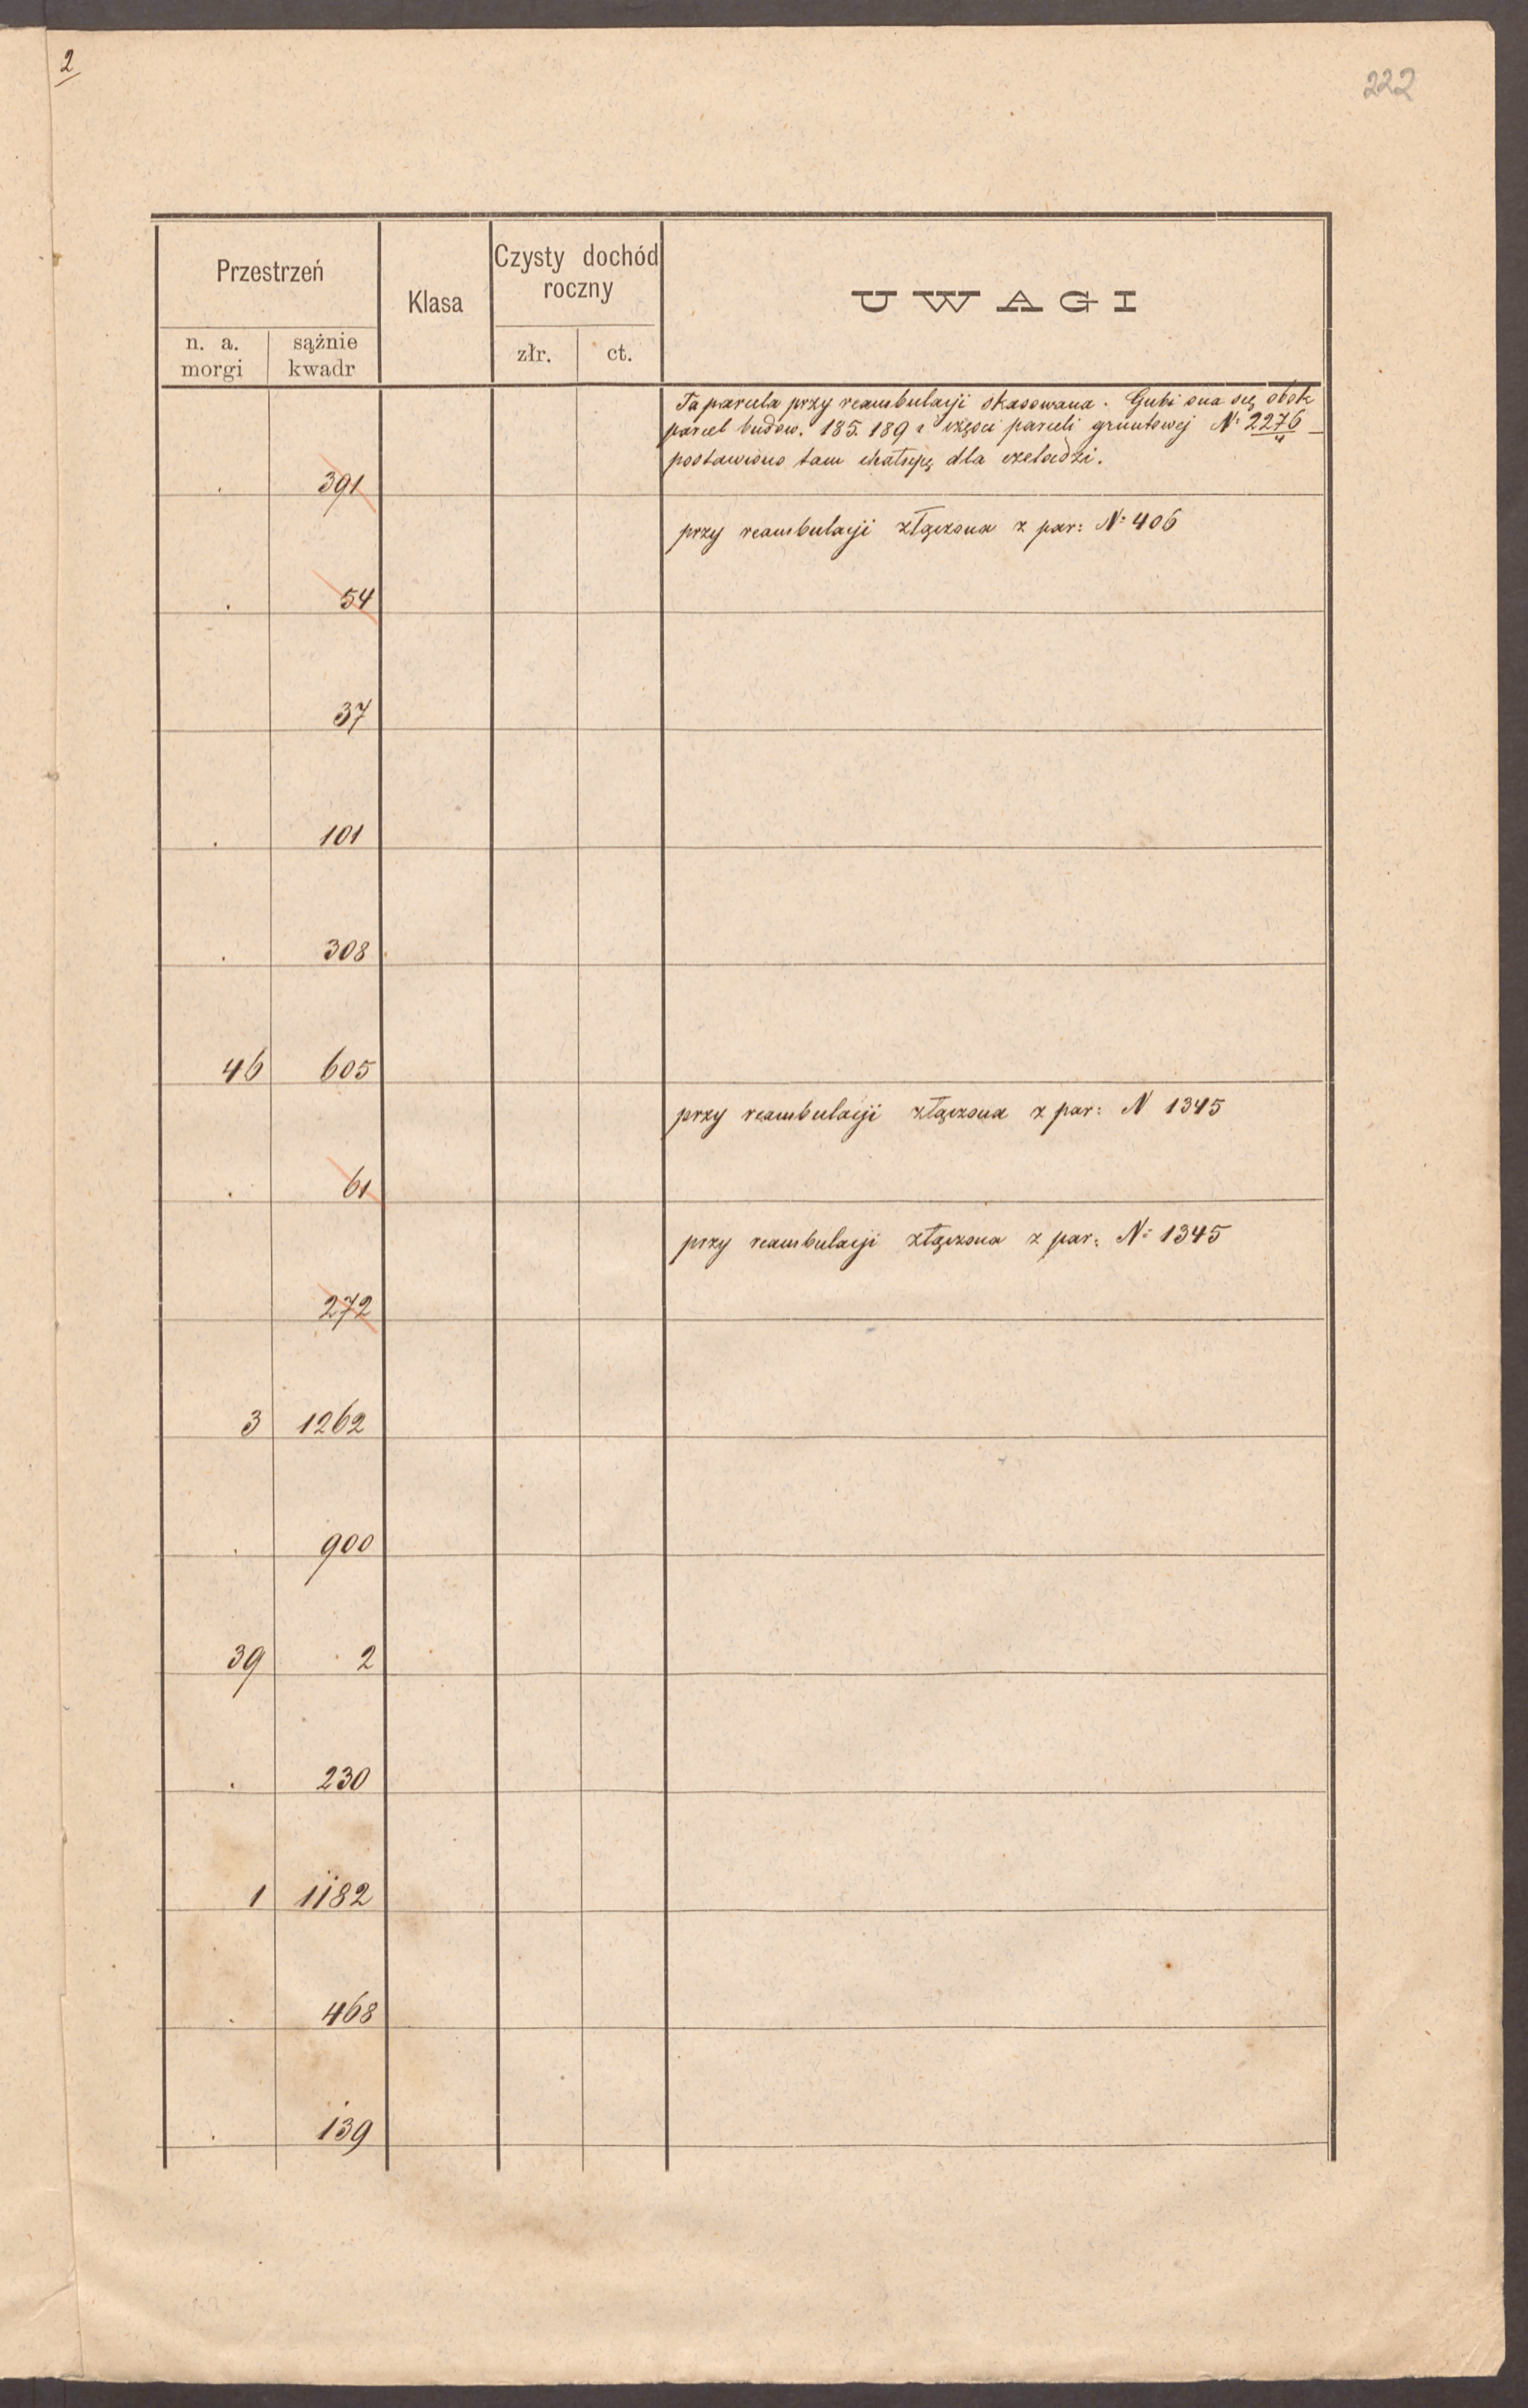 2
222
Przestrzeń
Klasa
Czysty dochód
roczny
UWAGI
n. a.
morgi
sążnie
kwadr
złr.
ct.
Ta parcela przy reambulacji skasowana. Gubi ona się obok
parcel budow. 185. 189 i części parceli gruntowej Nº 2276 –
postawiono tam chałupę dla czeladzi.
. 391
przy reambulacji złączona z par: Nº 406
. 54
37
. 101
. 308
46 605
przy reambulacji złączona z par: N 1345
. 61
przy reambulacji złączona z par: Nº 1345
272
3 1262
. 900
39 2
. 230
1 1182
. 468
. 139